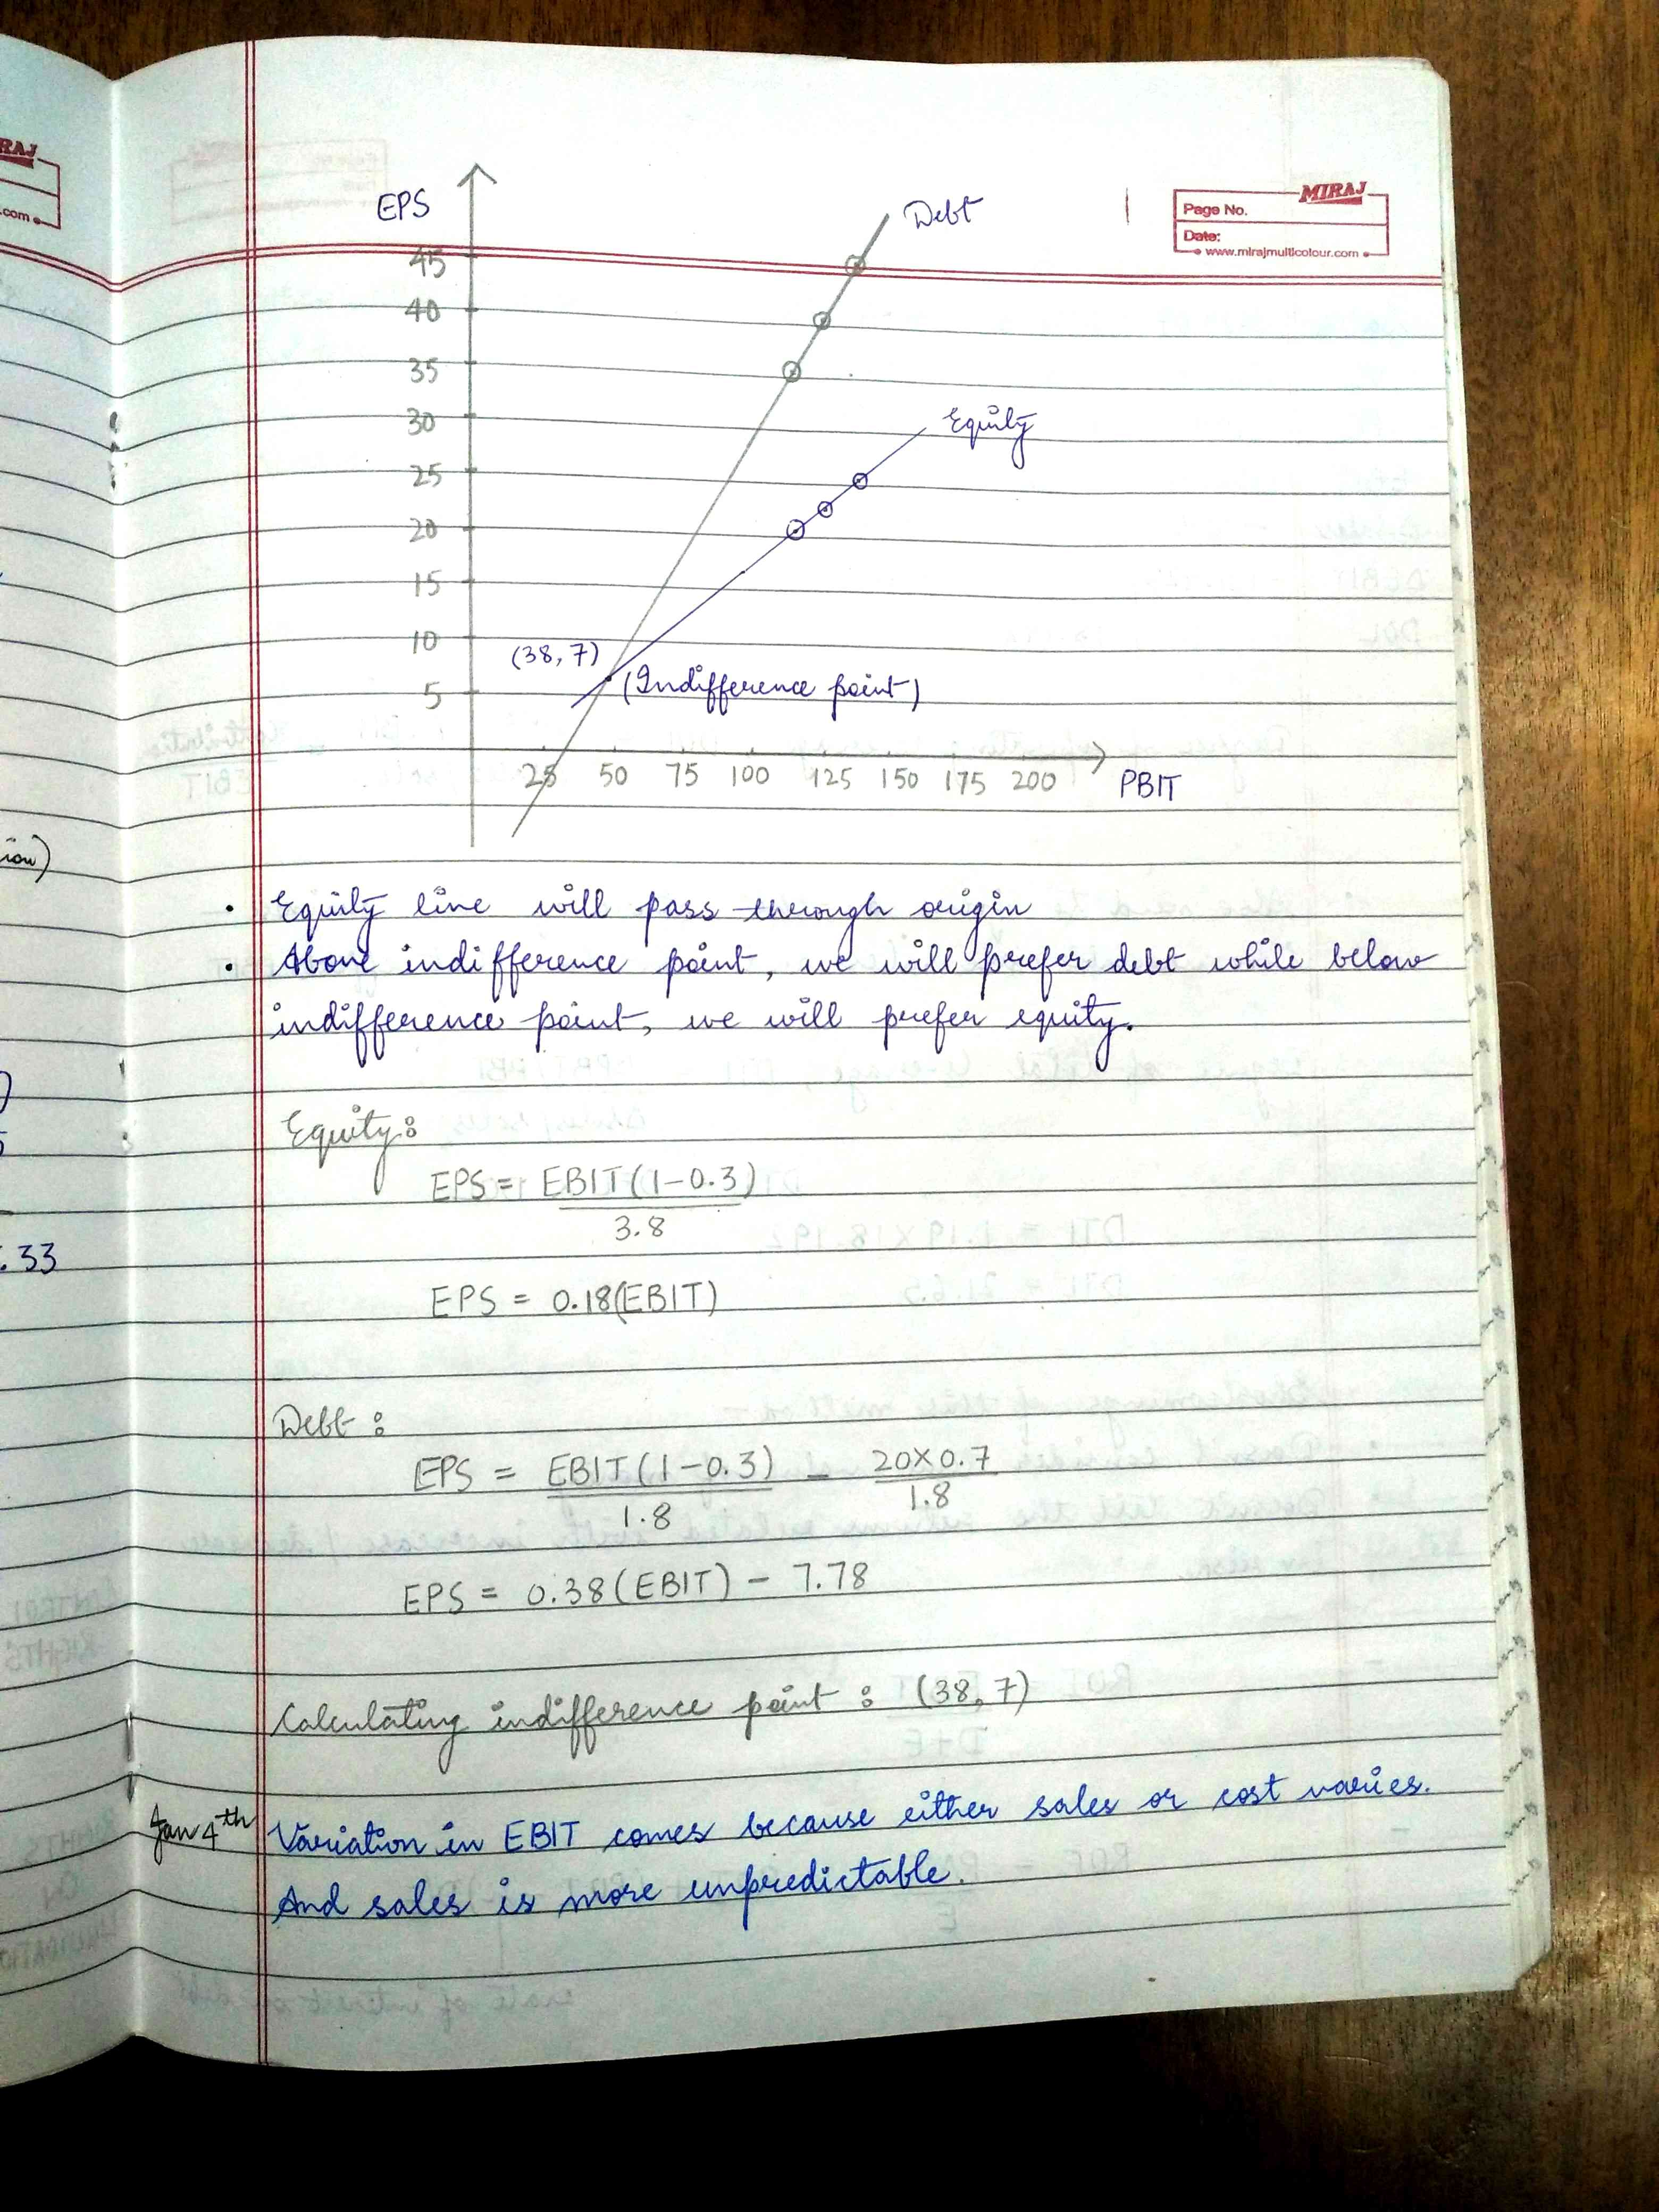 RAJ
.com
EPS
Debt
MIRAJ
Page No.
Date:
www.mirajmulticolour.com
45
40
35
30
Equity
25
20
15
10
(38,7)
(Indifference point)
5
25 50 75 100 125 150 175 200
PBIT
• Equity line will pass through origin
• Above indifference point, we will prefer debt while below
indifference point, we will prefer equity.
Equity:
EPS = EBIT(1-0.3)
3.8
.33
EPS = 0.18(EBIT)
Debt:
EPS = EBIT(1-0.3) - 20×0.7
1.8 1.8
EPS = 0.38(EBIT) - 7.78
Calculating indifference point : (38,7)
Jan 4th Variation in EBIT comes because either sales or cost varies.
And sales is more unpredictable.